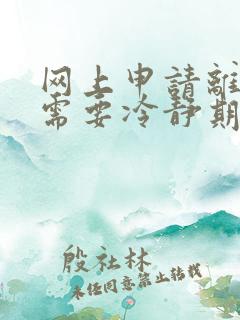 网上申請離
需要冷静期
殷社林
未经同意禁止转载